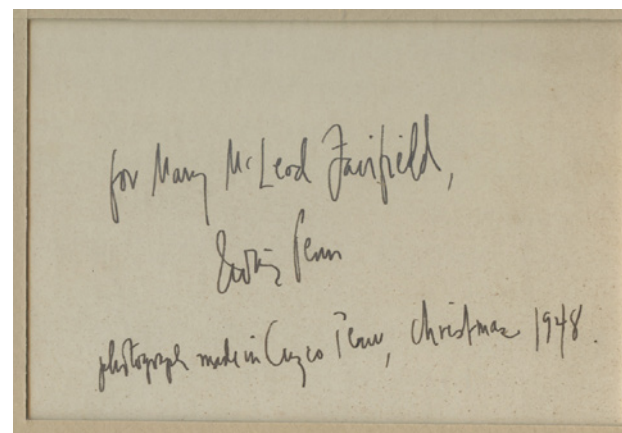 for Mary McLeod Fairfield,
Irving Penn
photograph made in Cuzco Peru, Christmas 1948.